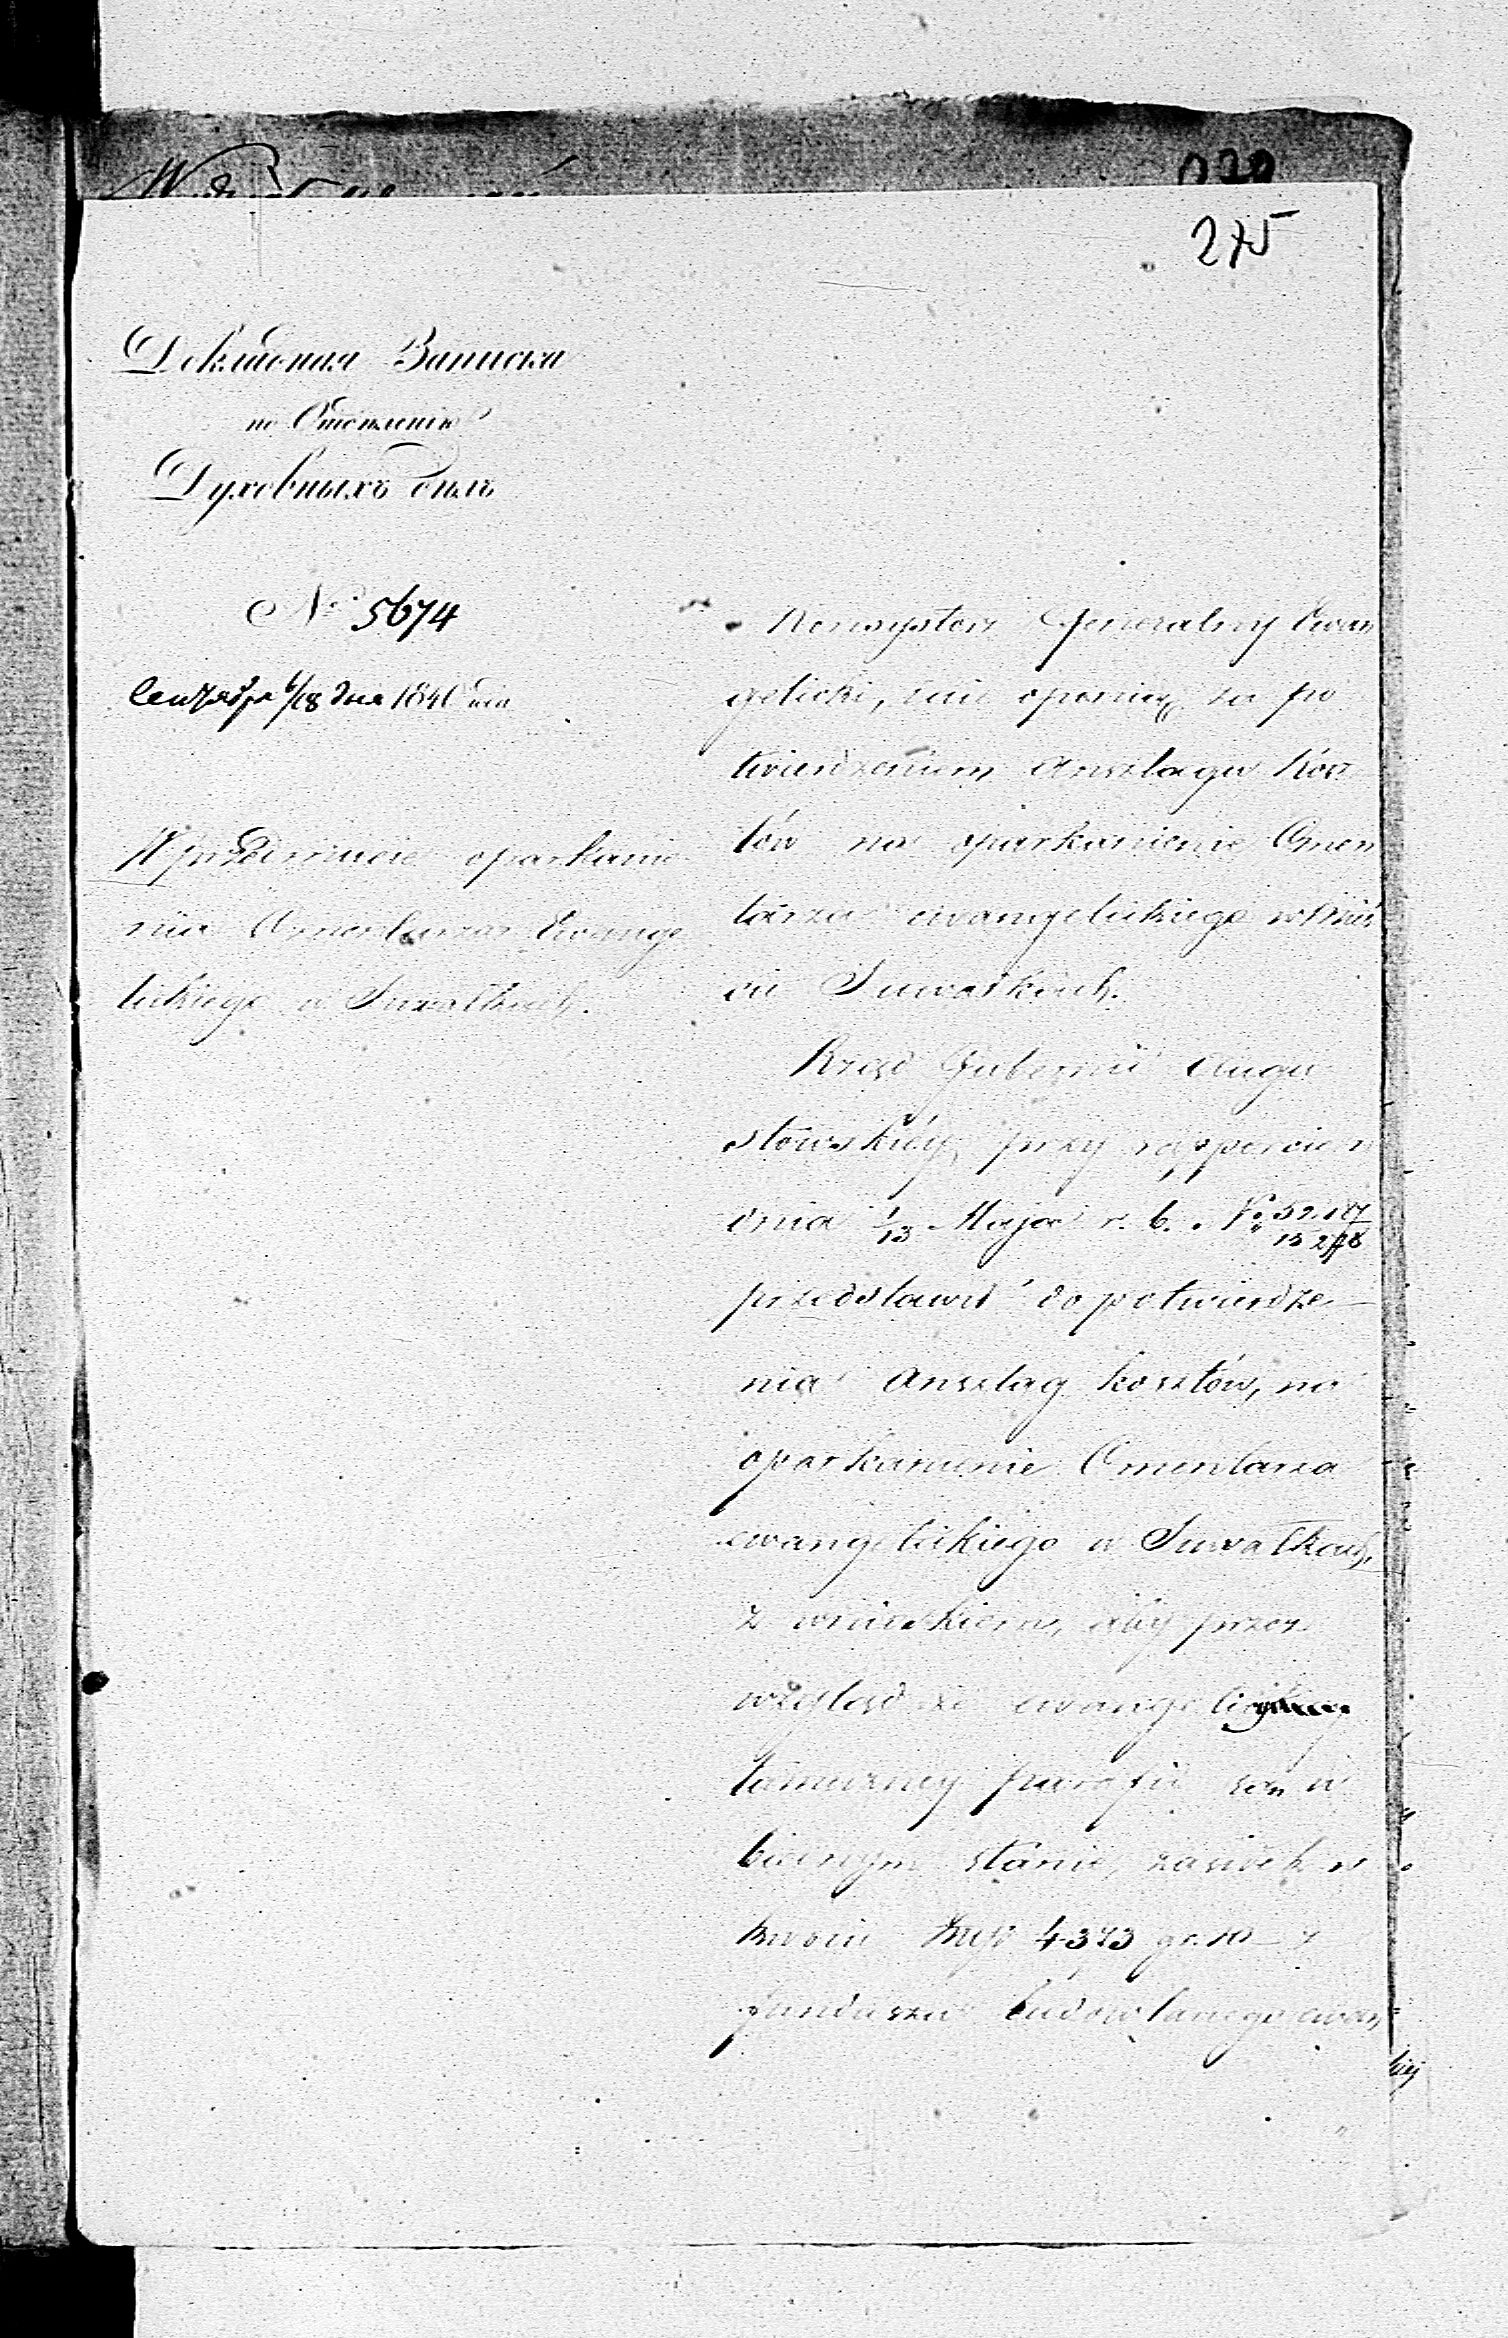 275
Докладная Записка
по Отделенію
Духовныхъ дѣлъ
№ 5674
Сентября 6/18 дня 1840 года
W przedmiocie oparkanie
nia Cmentarza Ewange
lickiego w Suwałkach.
Konsystorz Generalny Ewan
gelicki, z opinią za po
twierdzeniem Anszlagu kosz
tów na oparkanienie Cmen
tarza ewangelickiego w Mieś
cie Suwałkach.
Rząd Gubernii Augu
stowskiéy, przy rapporcie z
dnia 1/13 Maja r. b. N°
przedstawił do potwierdze
nia anszlag kosztów, na
oparkanienie Cmentarza
ewangelickiego w Suwałkach,
z wnioskiem, aby przez
wzgląd że
tamecznej parafii są w
biednym stanie, zasiłek w
kwocie Złp 4373 gr. 10 z
funduszu budowlanego ewan